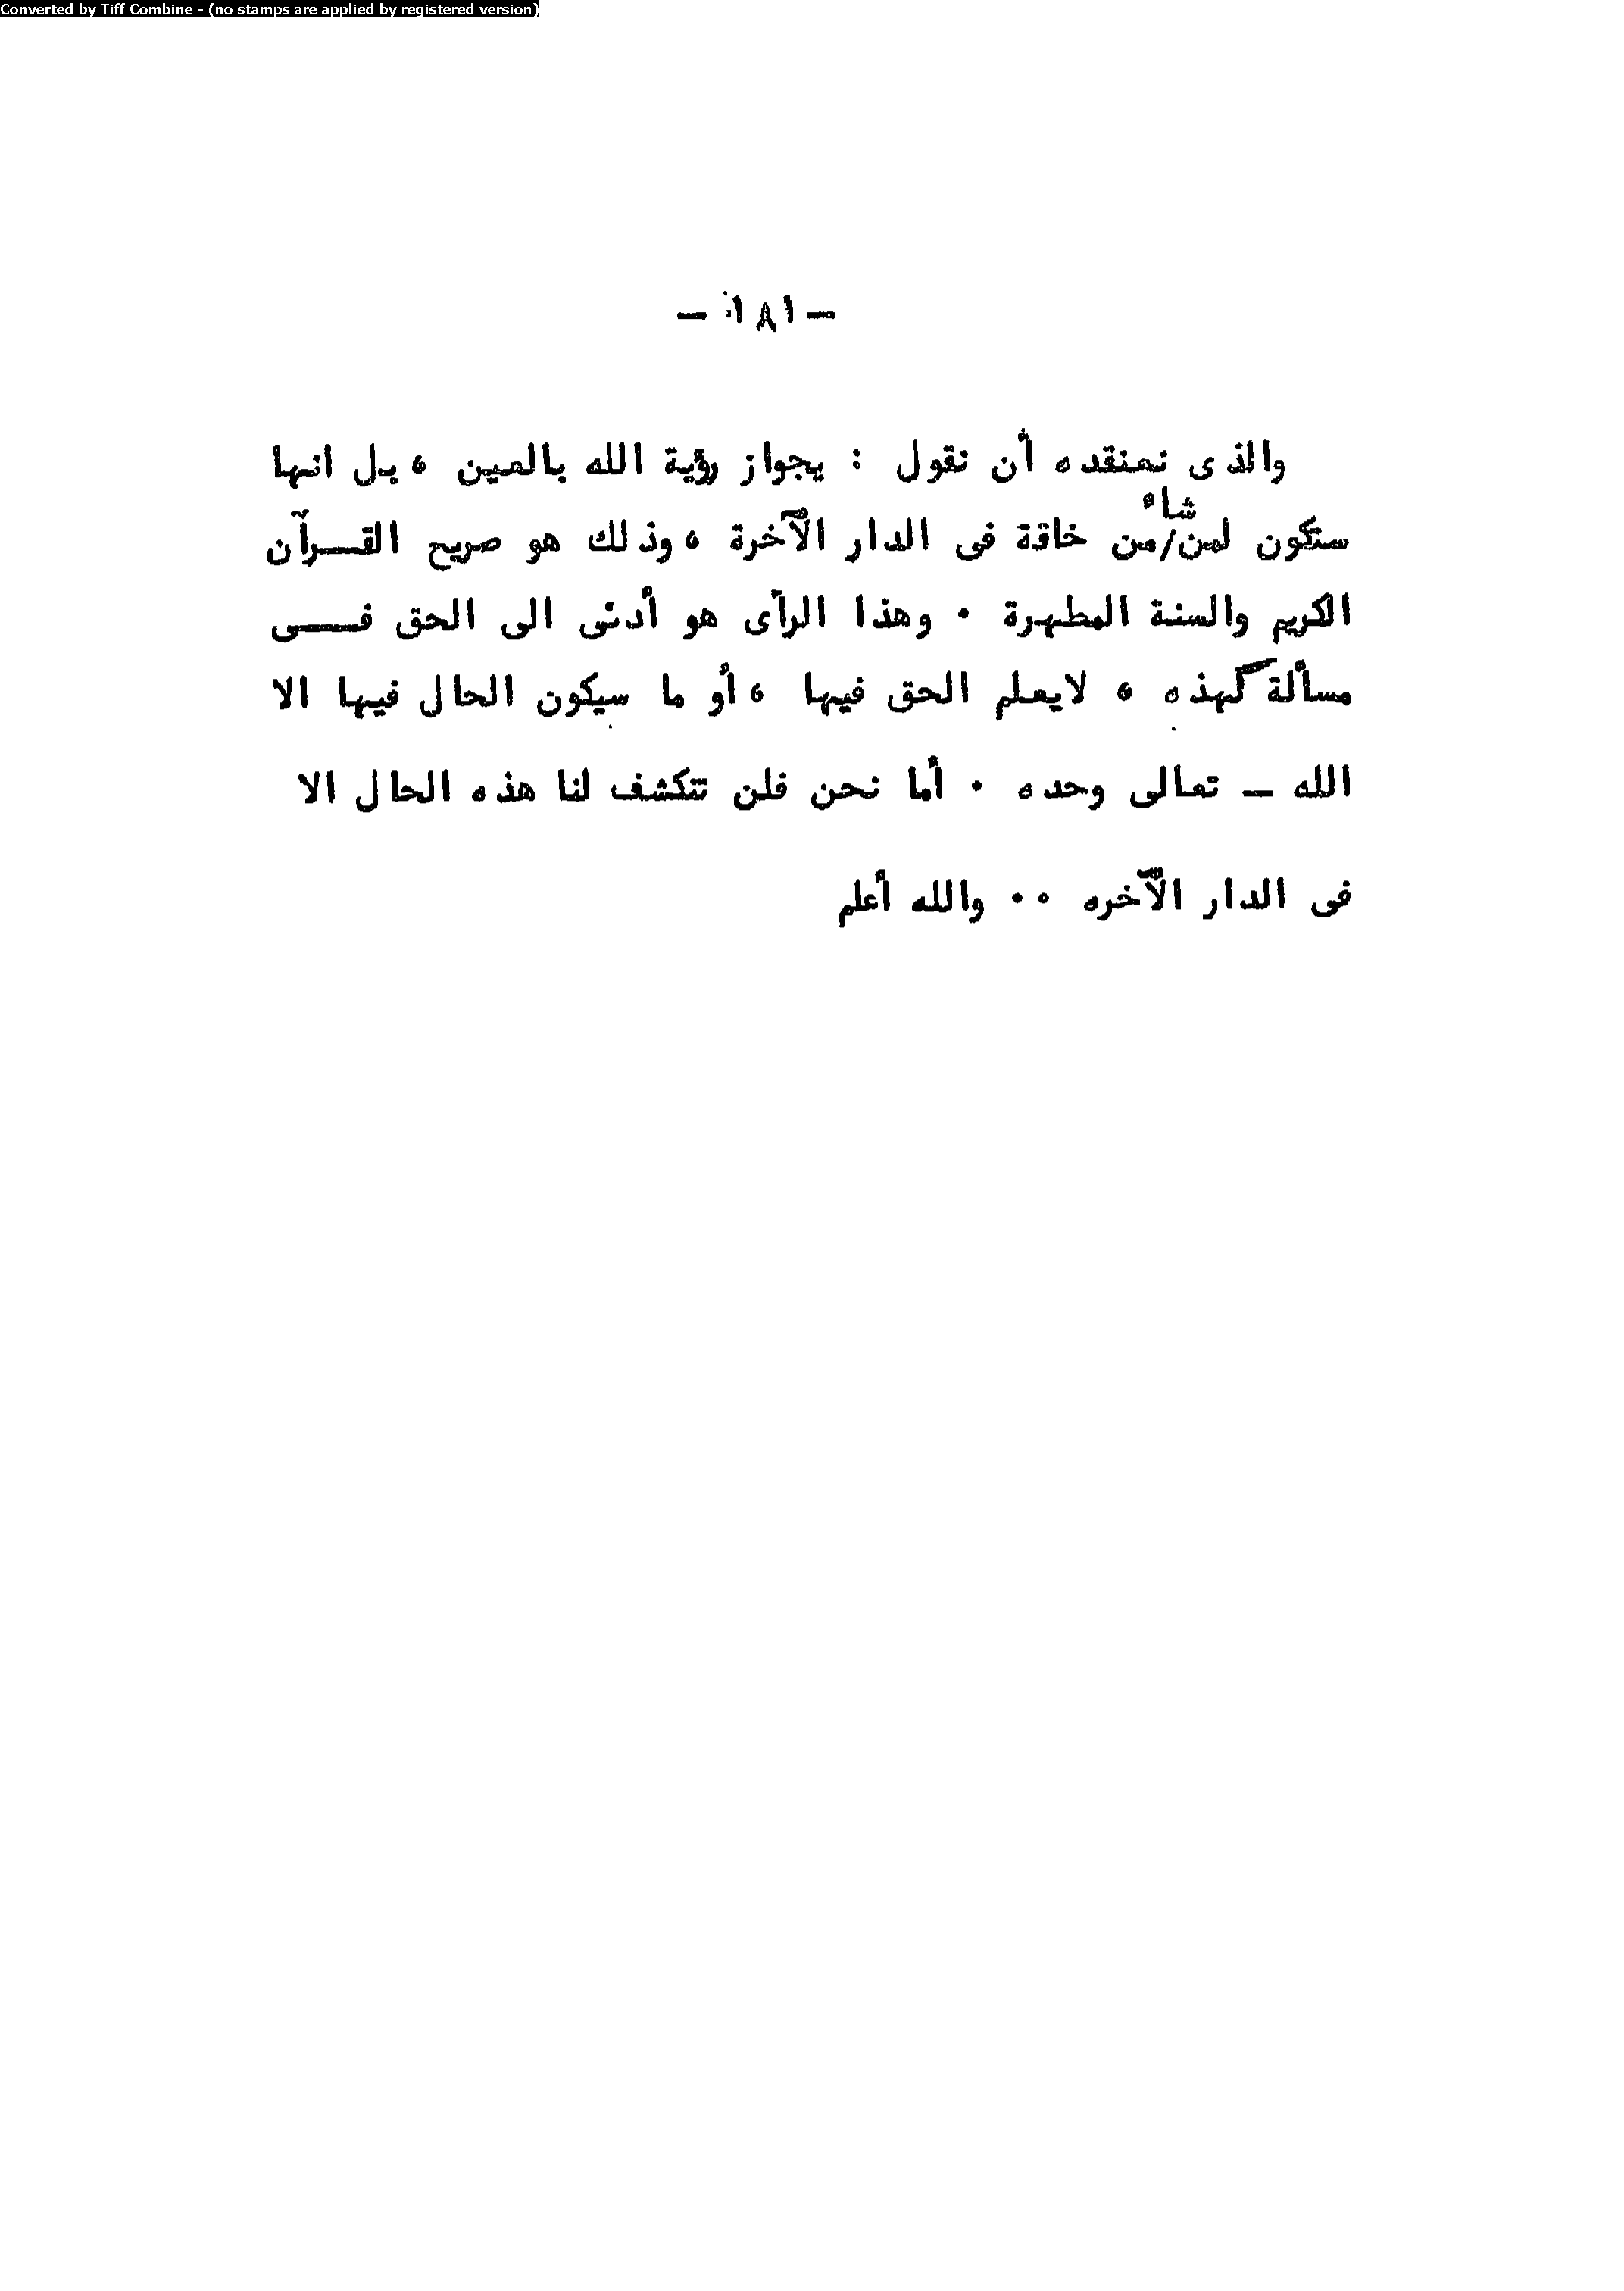 Converted by Tiff Combine - (no stamps are applied by registered version)
- ١٨١ -
والذى نعتقده أن نقول : بجواز رؤية الله بالعين ، بل انها
ستكون لمن/شاء من خاقة فى الدار الآخرة ، وذلك هو صريح القرآن
الكريم والسنة المطهرة . وهذا الرأى هو أدنى الى الحق فى
مسألة كهذه ، لايعلم الحق فيها ، أو ما سيكون الحال فيها الا
الله - تعالى وحده . أما نحن فلن تتكشف لنا هذه الحال الا
فى الدار الآخره .. والله أعلم